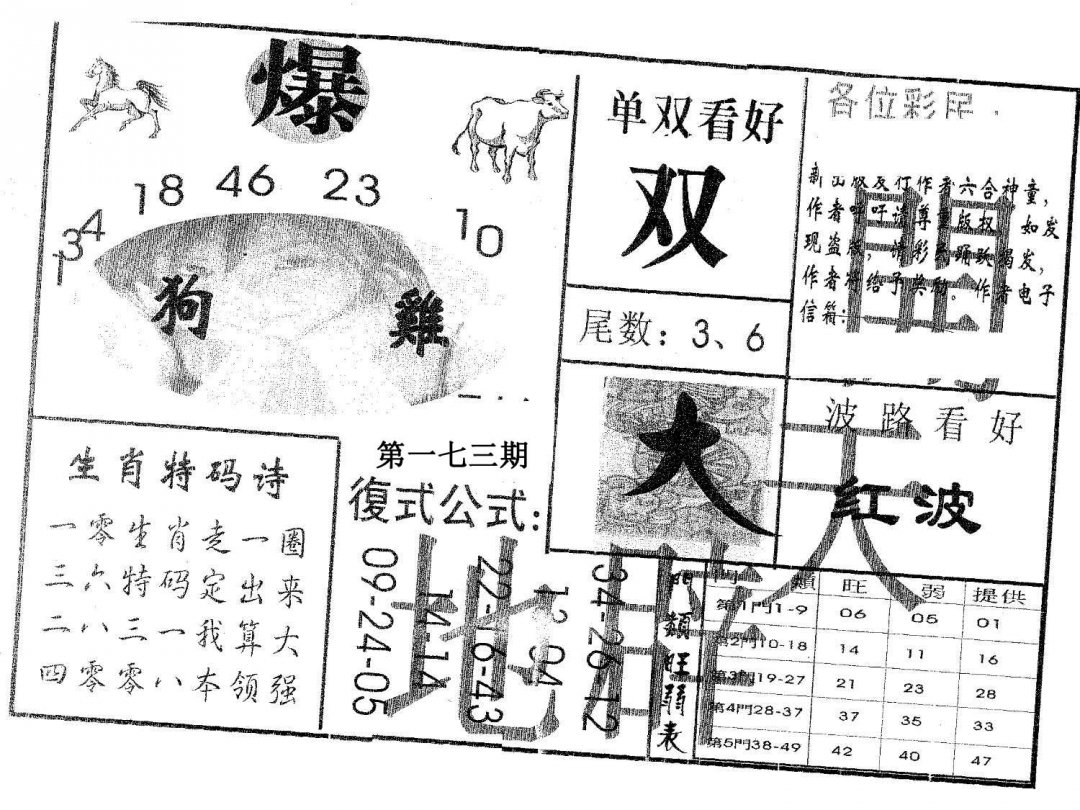 爆
18 46 23
34
10
1
狗 雞
单双看好
双
尾数：3、6
各位彩民
作者六合神童，
作者呼吁请尊重版权，如发
现盗版，请彩民踊跃揭发，
作者将给予奖励。作者电子
信箱：
大
波路看好
红波
生肖特码诗
一零生肖走一圈
三六特码定出来
二八三一我算大
四零零八本领强
第一七三期
復式公式：
09-24-05
14-14
22-16-43
12 04
34-26-12
門類旺弱表
門類 旺 弱 提供
第1門1-9 06 05 01
第2門10-18 14 11 16
第3門19-27 21 23 28
第4門28-37 37 35 33
第5門38-49 42 40 47